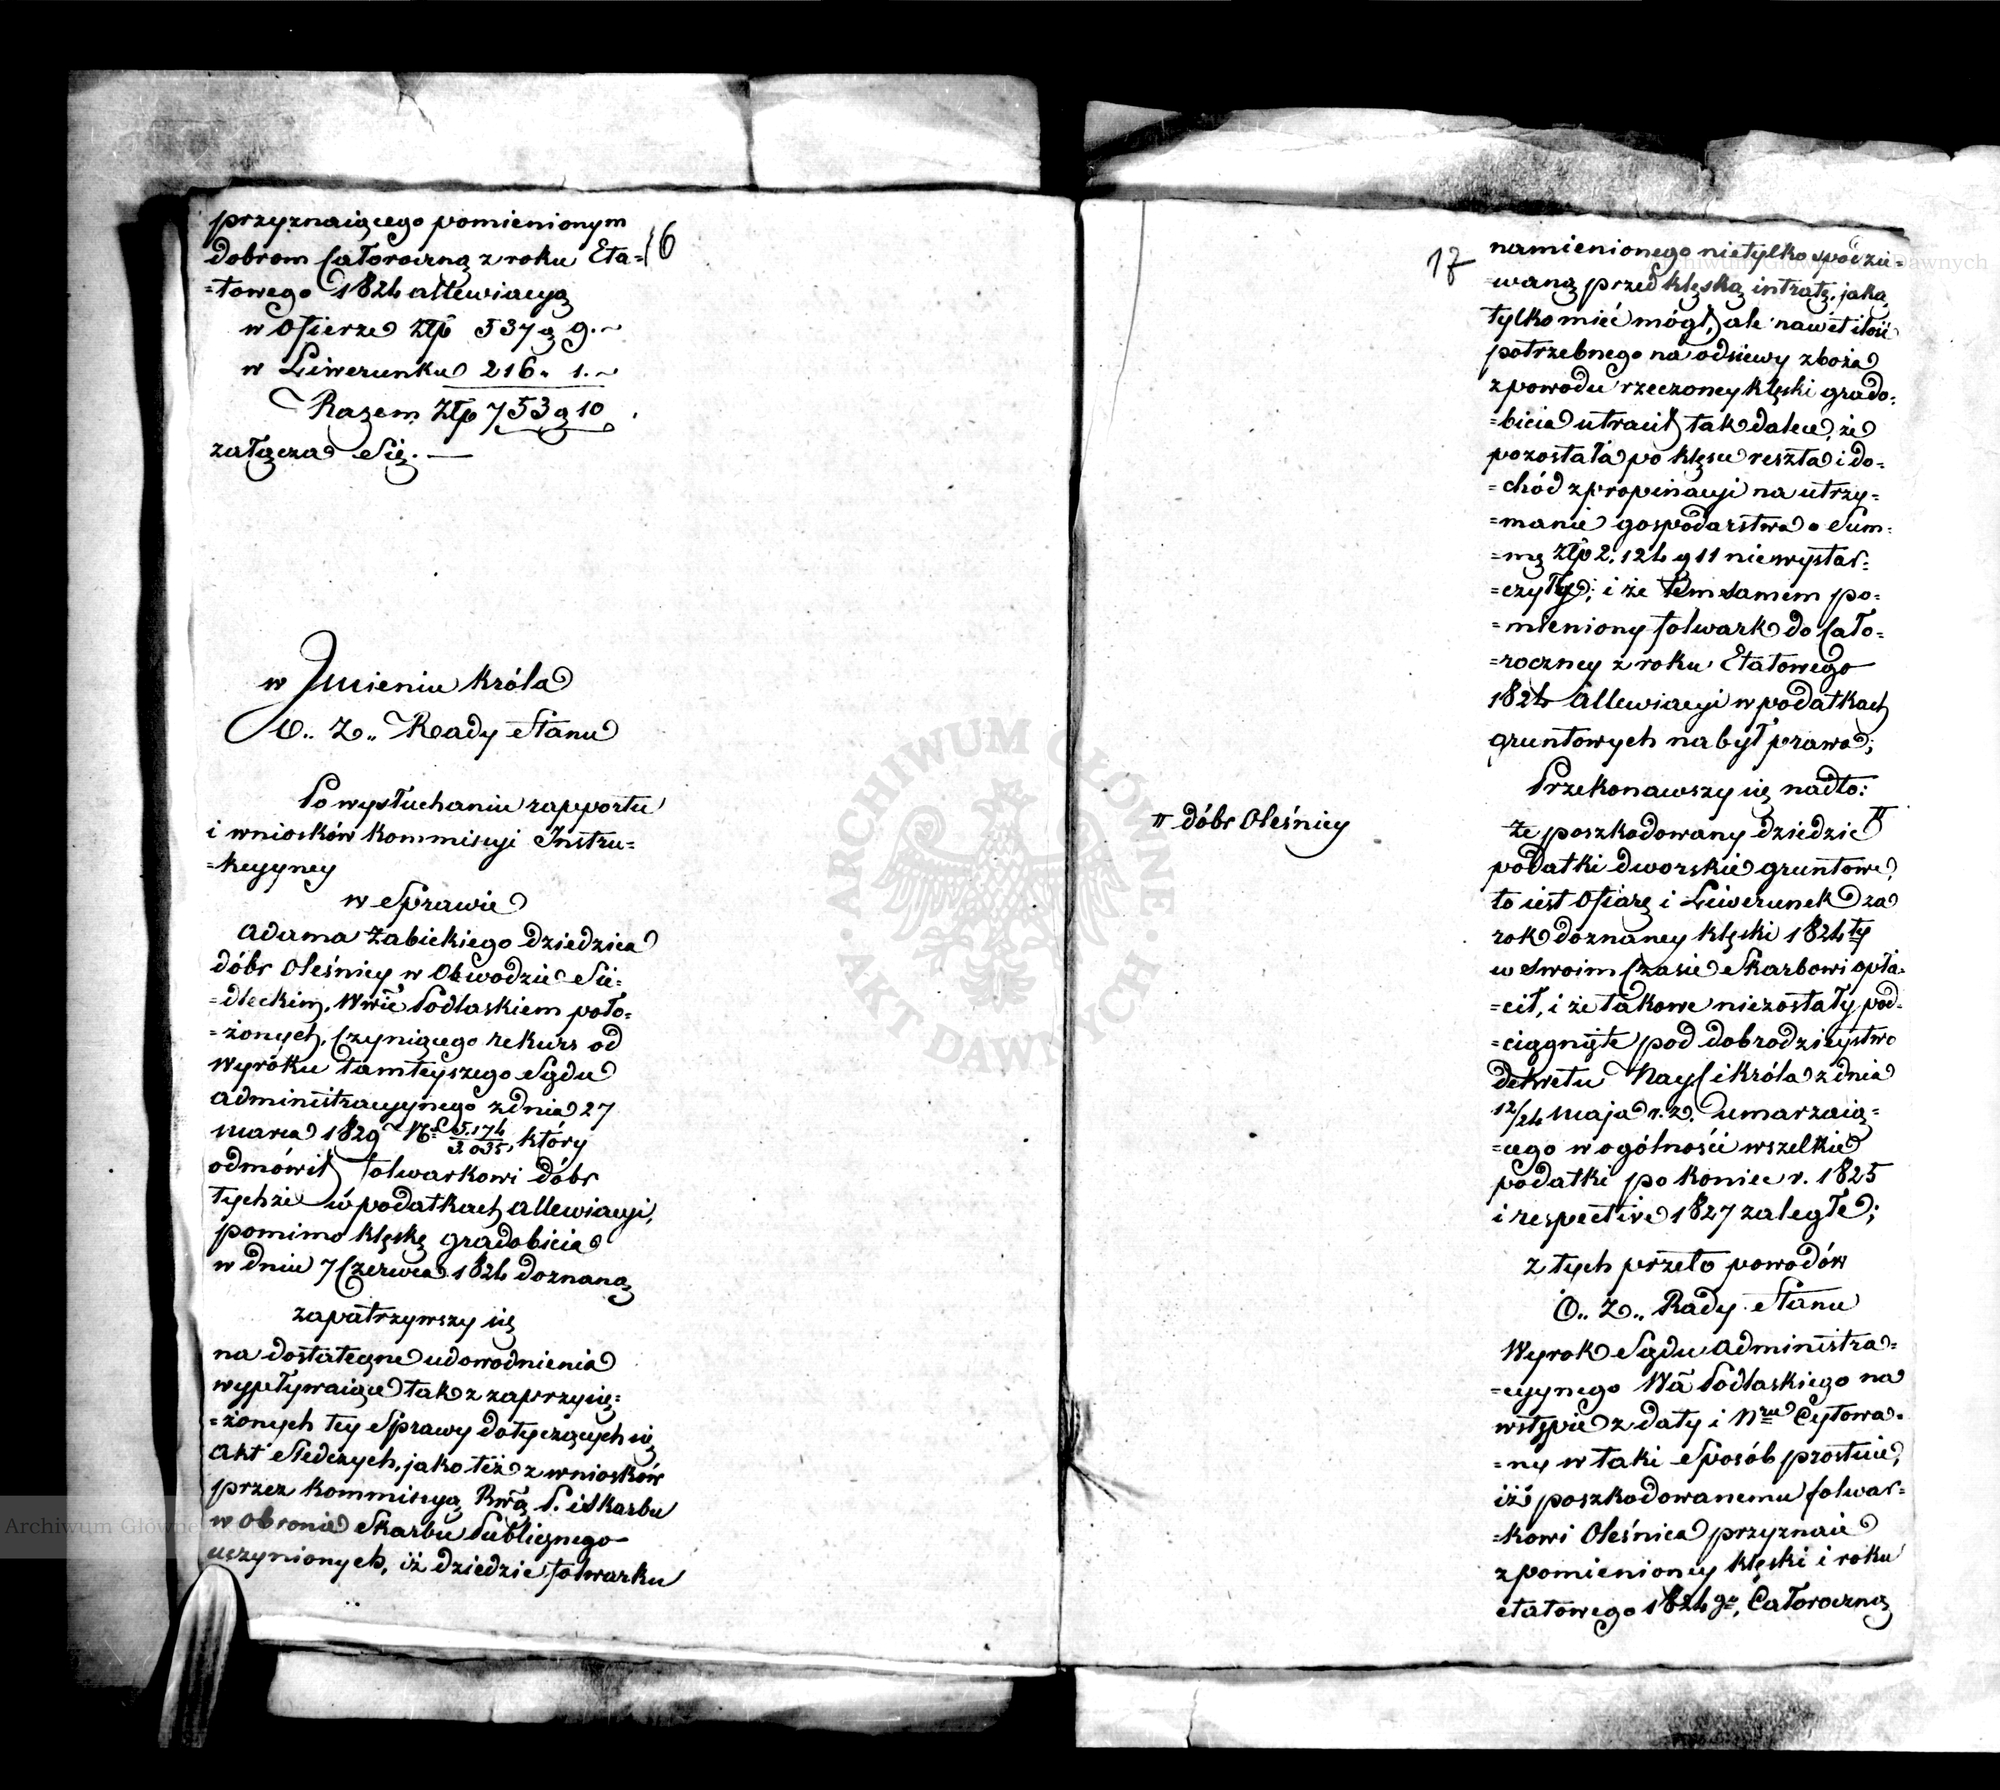 przyznaiącego pomienionym
dobrom Całoroczną z roku Eta=
=towego 1824 allewiacyą
w Ofierze Złp 537 g 9.~
w Liwerunku 216. 1.~
Razem Złp 753 g 10
załącza Się. —
w Jmieniu Króla
O.. Z.. Rady Stanu
Po wysłuchaniu rapportu
i wniosków Kommissyi Instru=
=kcyyney
w Sprawie
Adama Żabickiego dziedzica
dóbr Oleśnicy w Obwodzie Sie=
=dleckim, Wwie Podlaskiem poło=
=żonych, Czyniącego rekurs od
Wyroku tamteyszego Sądu
administracyynego z dnia 27
marca 1829 No 5.174/3.035, który
odmówił folwarkowi dóbr
tychże w podatkach allewiacyi,
pomimo klęskę gradobicia
w dniu 7 Czerwca 1824 doznaną
zapatrzywszy się
na dostateczne udowodnienia
wypływaiące tak z zaprzysię=
=żonych tey Sprawy dotyczących się
akt śledczych, jako też z wniosków
przez Kommissyą Rwą P. i Skarbu
w obronie Skarbu Publicznego
uczynionych, iż dziedzic folwarku
16
17
namienionego nietylko spodzie=
=waną przed klęską intratę, jaką
tylko mieć mógł, ale nawet ilość
potrzebnego na odsiewy zboża
z powodu rzeczoney klęski grado=
=bicia utracił tak dalece, że
pozostała po klęsce reszta i do=
=chód z propinacyi na utrzy=
=manie gospodarstwa o Sum=
=mę Złp 2,124 g 11 niewystar=
=czyły; i że tem samem po=
=mieniony folwark do Cało=
=roczney z roku Etatowego
1824 Allewiacyi w podatkach
gruntowych nabył prawo;
Przekonawszy się nadto:
że poszkodowany dziedzic ╥
╥ dóbr Oleśnicy
podatki dworskie gruntowe,
to iest Ofiarę i Liwerunek za
rok doznaney klęski 1824ty
w Swoim Czasie Skarbowi opła=
=cił, i że takowe niezostały pod=
=ciągnięte pod dobrodzieystwo
dekretu Nay C i Króla z dnia
12/24 maja r. z. umarzaią=
=cego w ogólności wszelkie
podatki po koniec r. 1825
i respective 1827 zaległe;
z tych przeto powodów
O.. Z.. Rady Stanu
Wyrok Sądu administra=
=cyynego Wa Podlaskiego na
wstępie z daty i Nru Cytowa=
=ny w taki Sposób prostuie,
iż poszkodowanemu folwar=
=kowi Oleśnica przyznaie
z pomienioney klęski i roku
etatowego 1824go, Całoroczną
ARCHIWUM GŁÓWNE AKT DAWNYCH